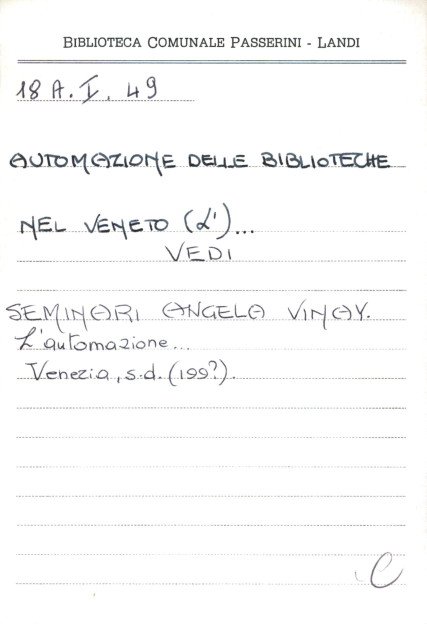 BIBLIOTECA COMUNALE PASSERINI - LANDI
18 A. I. 49
AUTOMAZIONE DELLE BIBLIOTECHE
NEL VENETO (L')...
VEDI
SEMINARI ANGELA VINAY.
L'automazione...
Venezia, s.d. (199?).
C